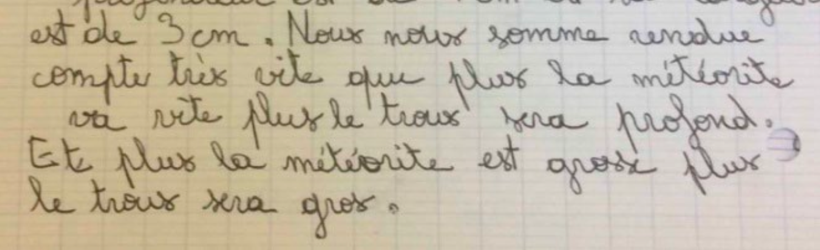 est de 3 cm. Nous nous somme rendue
compte très vite que plus la météorite
va vite plus le trous sera profond.
Et plus la météorite est grosse plus
le trous sera gros.